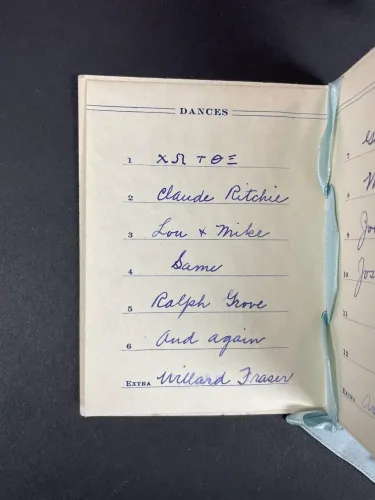 DANCES
1 ΧΩ ΤΘΞ
2 Claude Ritchie
3 Lou & Mike
4 Same
5 Ralph Grove
6 And again
EXTRA Willard Fraser
7
8
9
10
11
12
EXTRA